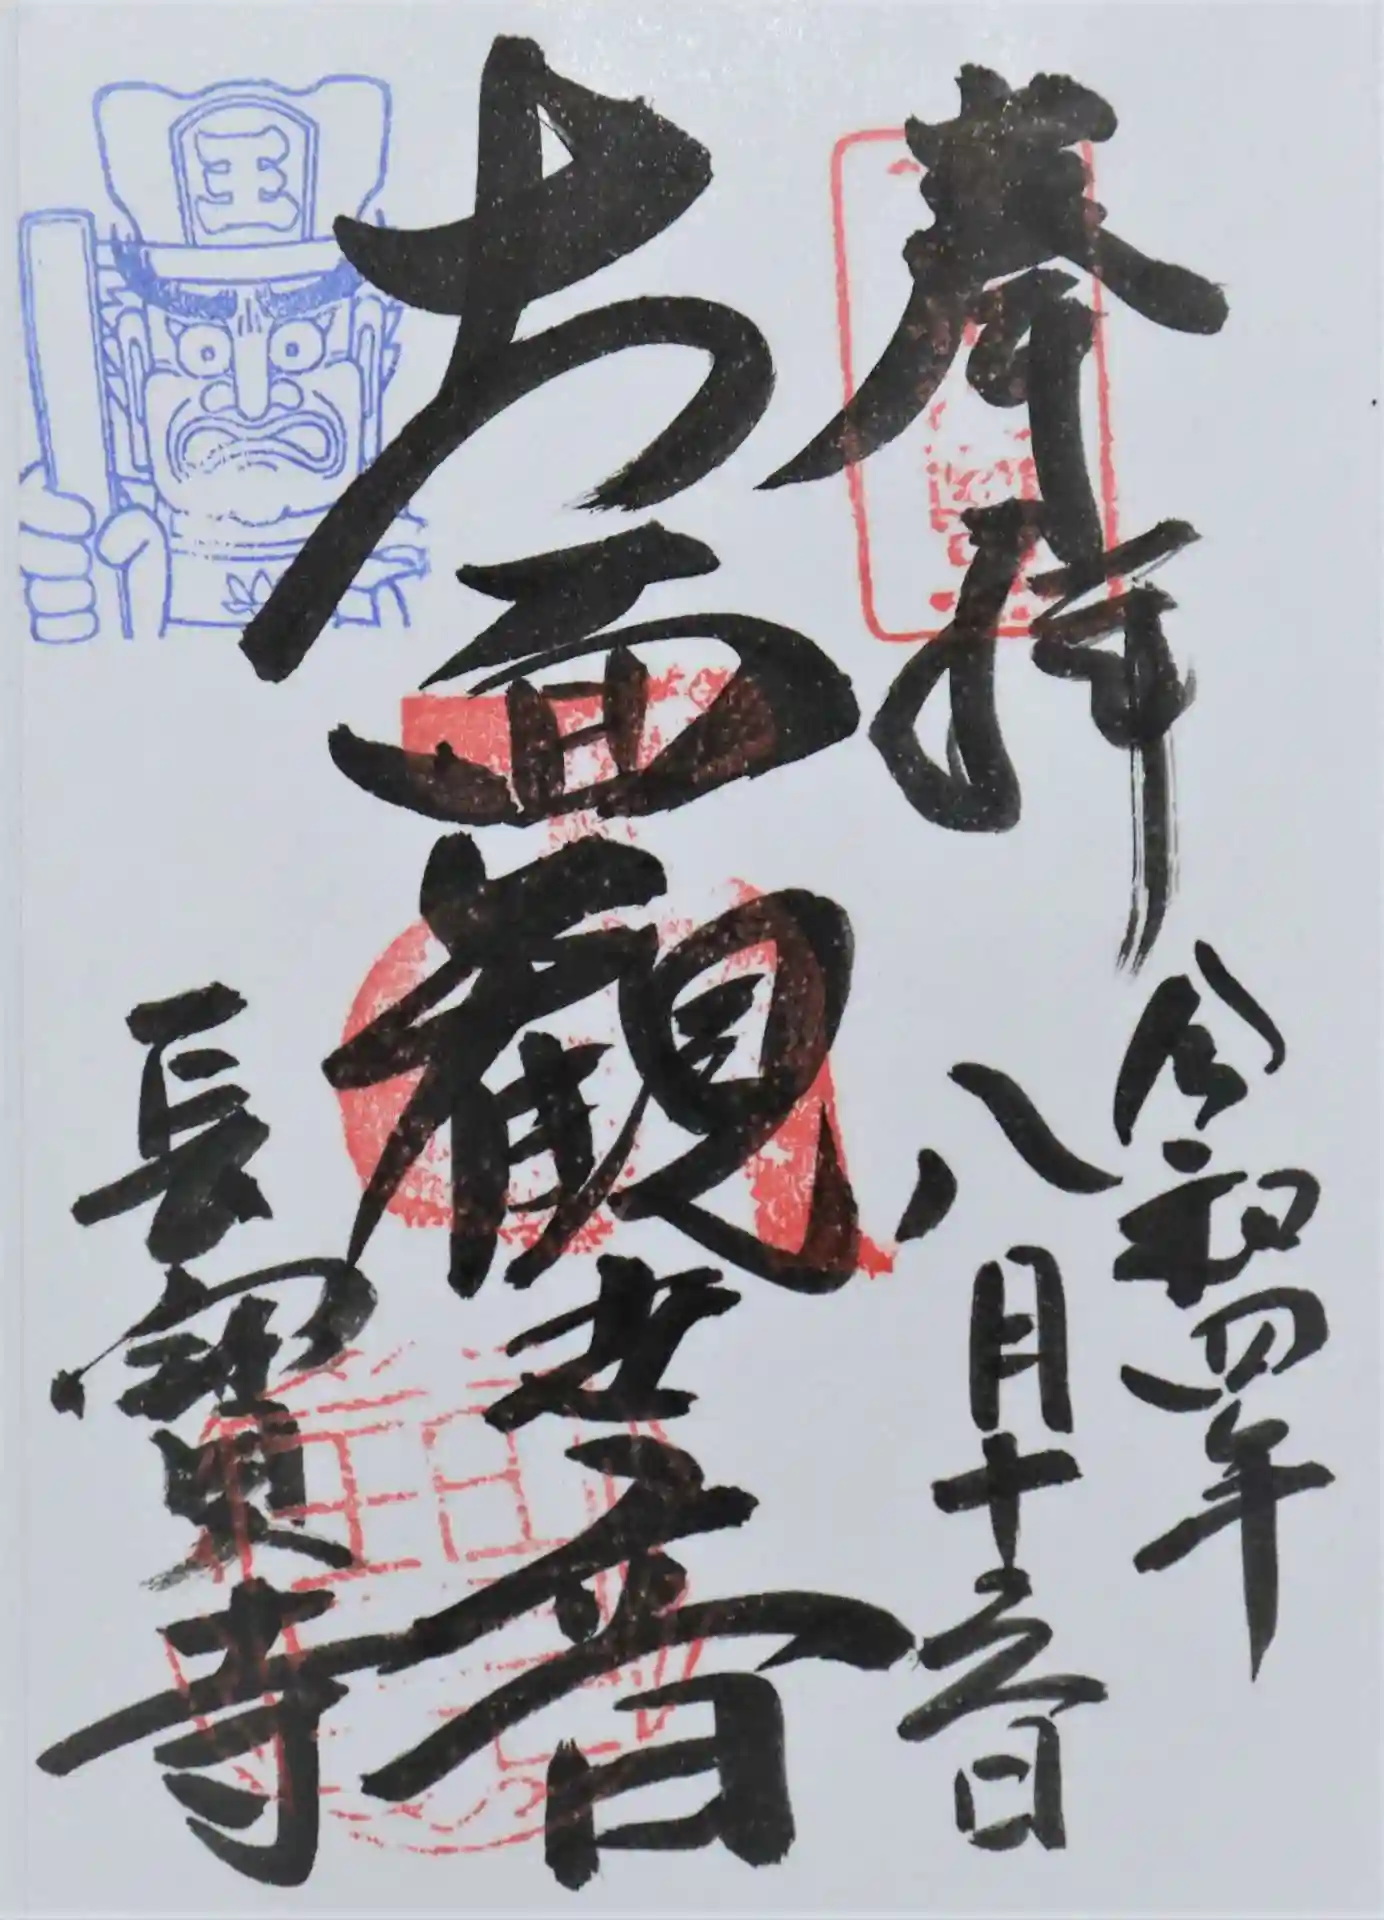 奉拝
令和四年
八月十六日
十一面観世音
長寳寺
王